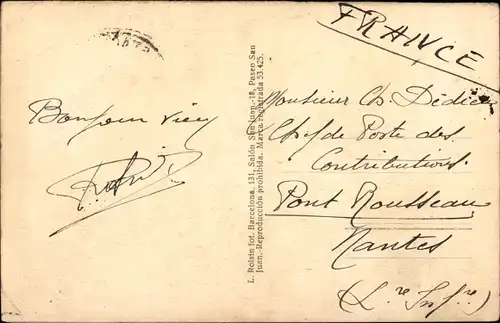 FRANCE
Bonjour vieux
L. Roisin fot. Barcelona, 131, Salón San Juan,-18, Paseo San
Juan.-Reproducción prohibida. Marca registrada 53.425.
Monsieur Ch. Dédieu
Chef de Poste des
Contributions.
Pont Rousseau
Nantes
(L.re Inf.re)